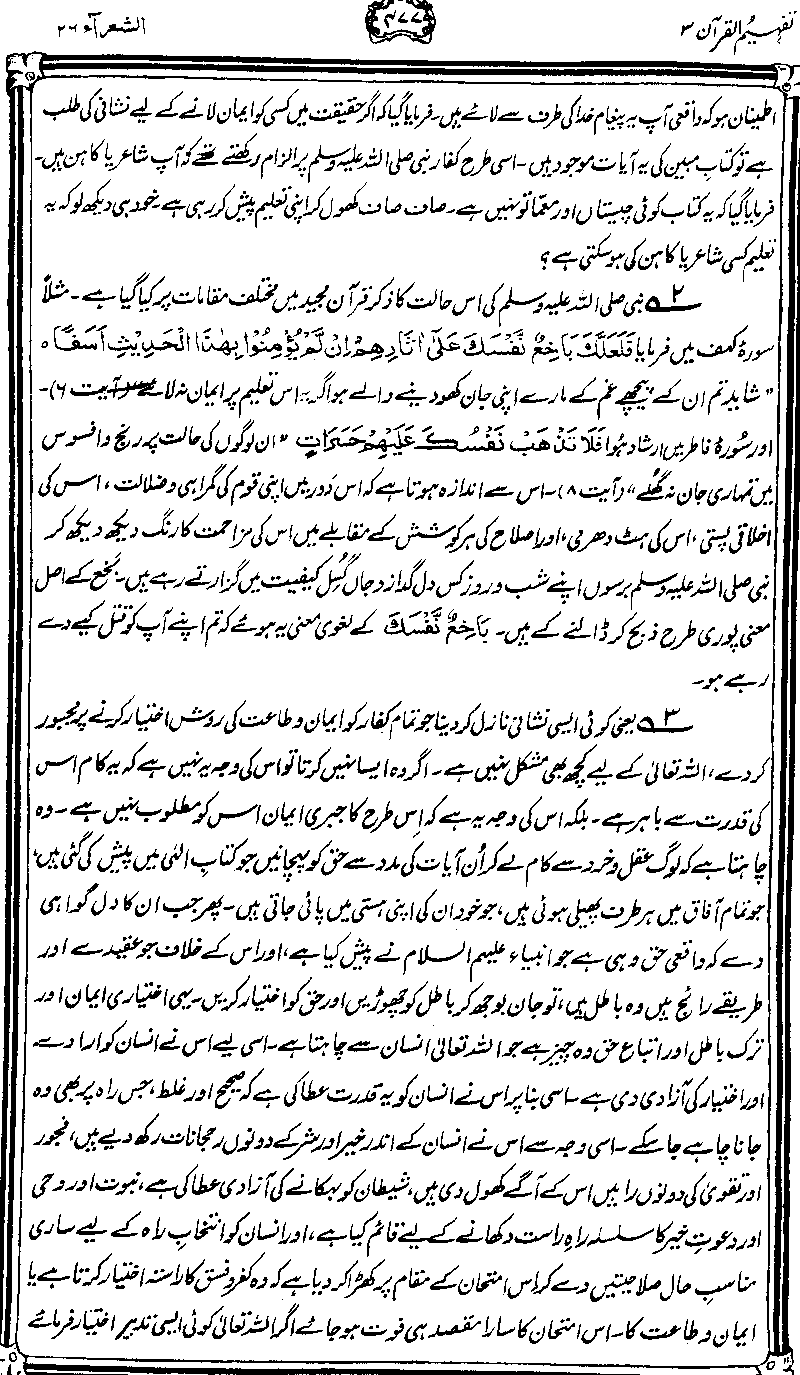 تفہیم القرآن ۳
۴۷۷
الشعرآء ۲۶
اطینان ہو کہ واقعی آپ یہ پیغام خدا کی طرف سے لائے ہیں۔ فرمایا گیا کہ اگر حقیقت میں کسی کو ایمان لانے کے لیے نشانی کی طلب
ہے تو کتابِ مبین کی یہ آیات موجود ہیں۔ اسی طرح کفار نبی صلی اللہ علیہ وسلم پر الزام رکھتے تھے کہ آپ شاعر یا کاہن ہیں۔
فرمایا گیا کہ یہ کتاب کوئی چیستاں اور معمّا تو نہیں ہے۔ صاف صاف کھول کر اپنی تعلیم پیش کر رہی ہے۔ خود ہی دیکھ لو کہ یہ
تعلیم کسی شاعر یا کاہن کی ہو سکتی ہے؟
۲ نبی صلی اللہ علیہ وسلم کی اس حالت کا ذکر قرآن مجید میں مختلف مقامات پر کیا گیا ہے۔ مثلاً
سورۂ کہف میں فرمایا فَلَعَلَّكَ بَاخِعٌ نَّفْسَكَ عَلٰٓى اٰثَارِهِمْ اِنْ لَّمْ يُؤْمِنُوْا بِهٰذَا الْحَدِيْثِ اَسَفًا ہ
"شاید تم ان کے پیچھے غم کے مارے اپنی جان کھو دینے والے ہو اگر یہ اس تعلیم پر ایمان نہ لائے" (آیت ۶)۔
اور سُورۂ فاطر میں ارشاد ہُوا فَلَا تَذْهَبْ نَفْسُكَ عَلَيْهِمْ حَسَرَاتٍ "ان لوگوں کی حالت پر رنج و افسوس
میں تمہاری جان نہ گھُلے" (آیت ۸)۔ اس سے اندازہ ہوتا ہے کہ اس دَور میں اپنی قوم کی گمراہی و ضلالت، اس کی
اخلاقی پستی، اس کی ہٹ دھرمی، اور اصلاح کی ہر کوشش کے مقابلے میں اس کی مزاحمت کا رنگ دیکھ دیکھ کر
نبی صلی اللہ علیہ وسلم برسوں اپنے شب و روز کس دل گداز و جاں گُسِل کیفیت میں گزارتے رہے ہیں۔ بَخْع کے اصل
معنی پوری طرح ذبح کر ڈالنے کے ہیں۔ بَاخِعٌ نَّفْسَكَ کے لغوی معنی یہ ہوئے کہ تم اپنے آپ کو قتل کیے دے
رہے ہو۔
۳ یعنی کوئی ایسی نشانی نازل کر دینا جو تمام کفار کو ایمان و طاعت کی روش اختیار کرنے پر مجبور
کر دے، اللہ تعالیٰ کے لیے کچھ بھی مشکل نہیں ہے۔ اگر وہ ایسا نہیں کرتا تو اس کی وجہ یہ نہیں ہے کہ یہ کام اس
کی قدرت سے باہر ہے۔ بلکہ اس کی وجہ یہ ہے کہ اِس طرح کا جبری ایمان اس کو مطلوب نہیں ہے۔ وہ
چاہتا ہے کہ لوگ عقل و خرد سے کام لے کر اُن آیات کی مدد سے حق کو پہچانیں جو کتابِ الٰہی میں پیش کی گئی ہیں،
جو تمام آفاق میں ہر طرف پھیلی ہوئی ہیں، جو خود ان کی اپنی ہستی میں پائی جاتی ہیں۔ پھر جب ان کا دل گواہی
دے کہ واقعی حق وہی ہے جو انبیاء علیہم السلام نے پیش کیا ہے، اور اس کے خلاف جو عقیدے اور
طریقے رائج ہیں وہ باطل ہیں، تو جان بوجھ کر باطل کو چھوڑیں اور حق کو اختیار کریں۔ یہی اختیاری ایمان اور
ترکِ باطل اور اتباع حق وہ چیز ہے جو اللہ تعالیٰ انسان سے چاہتا ہے۔ اسی لیے اس نے انسان کو ارادے
اور اختیار کی آزادی دی ہے۔ اسی بنا پر اس نے انسان کو یہ قدرت عطا کی ہے کہ صحیح اور غلط، جس راہ پر بھی وہ
جانا چاہے جا سکے۔ اسی وجہ سے اس نے انسان کے اندر خیر اور شر کے دونوں رحجانات رکھ دیے ہیں، فجور
اور تقویٰ کی دونوں راہیں اس کے آگے کھول دی ہیں، شیطان کو بہکانے کی آزادی عطا کی ہے، نبوت اور وحی
اور دعوتِ خیر کا سلسلہ راہِ راست دکھانے کے لیے قائم کیا ہے، اور انسان کو انتخابِ راہ کے لیے ساری
مناسبِ حال صلاحیتیں دے کر اس امتحان کے مقام پر کھڑا کر دیا ہے کہ وہ کفر و فسق کا راستہ اختیار کرتا ہے یا
ایمان و طاعت کا۔ اس امتحان کا سارا مقصد ہی فوت ہو جائے اگر اللہ تعالیٰ کوئی ایسی تدبیر اختیار فرمائے